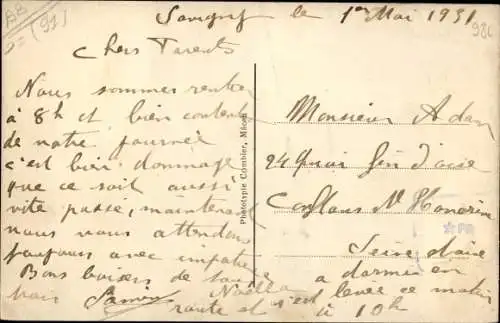 BB
(91)
Savigny le 1er Mai 1931
98c
Chers Parents
Nous sommes rentrés
à 8h et bien contents
de notre journée
c'est bien dommage
que ce soit aussi
vite passé, maintenant
nous vous attendons
toujours avec impatience
Bons baisers de tous
mais Noëlla a dormi en
route et s'est levée ce matin
à 10h
Phototypie Combier, Mâcon
Monsieur Adam
24 Quai Gén d'oise
Conflans Ste Honorine
Seine et oise
*PR